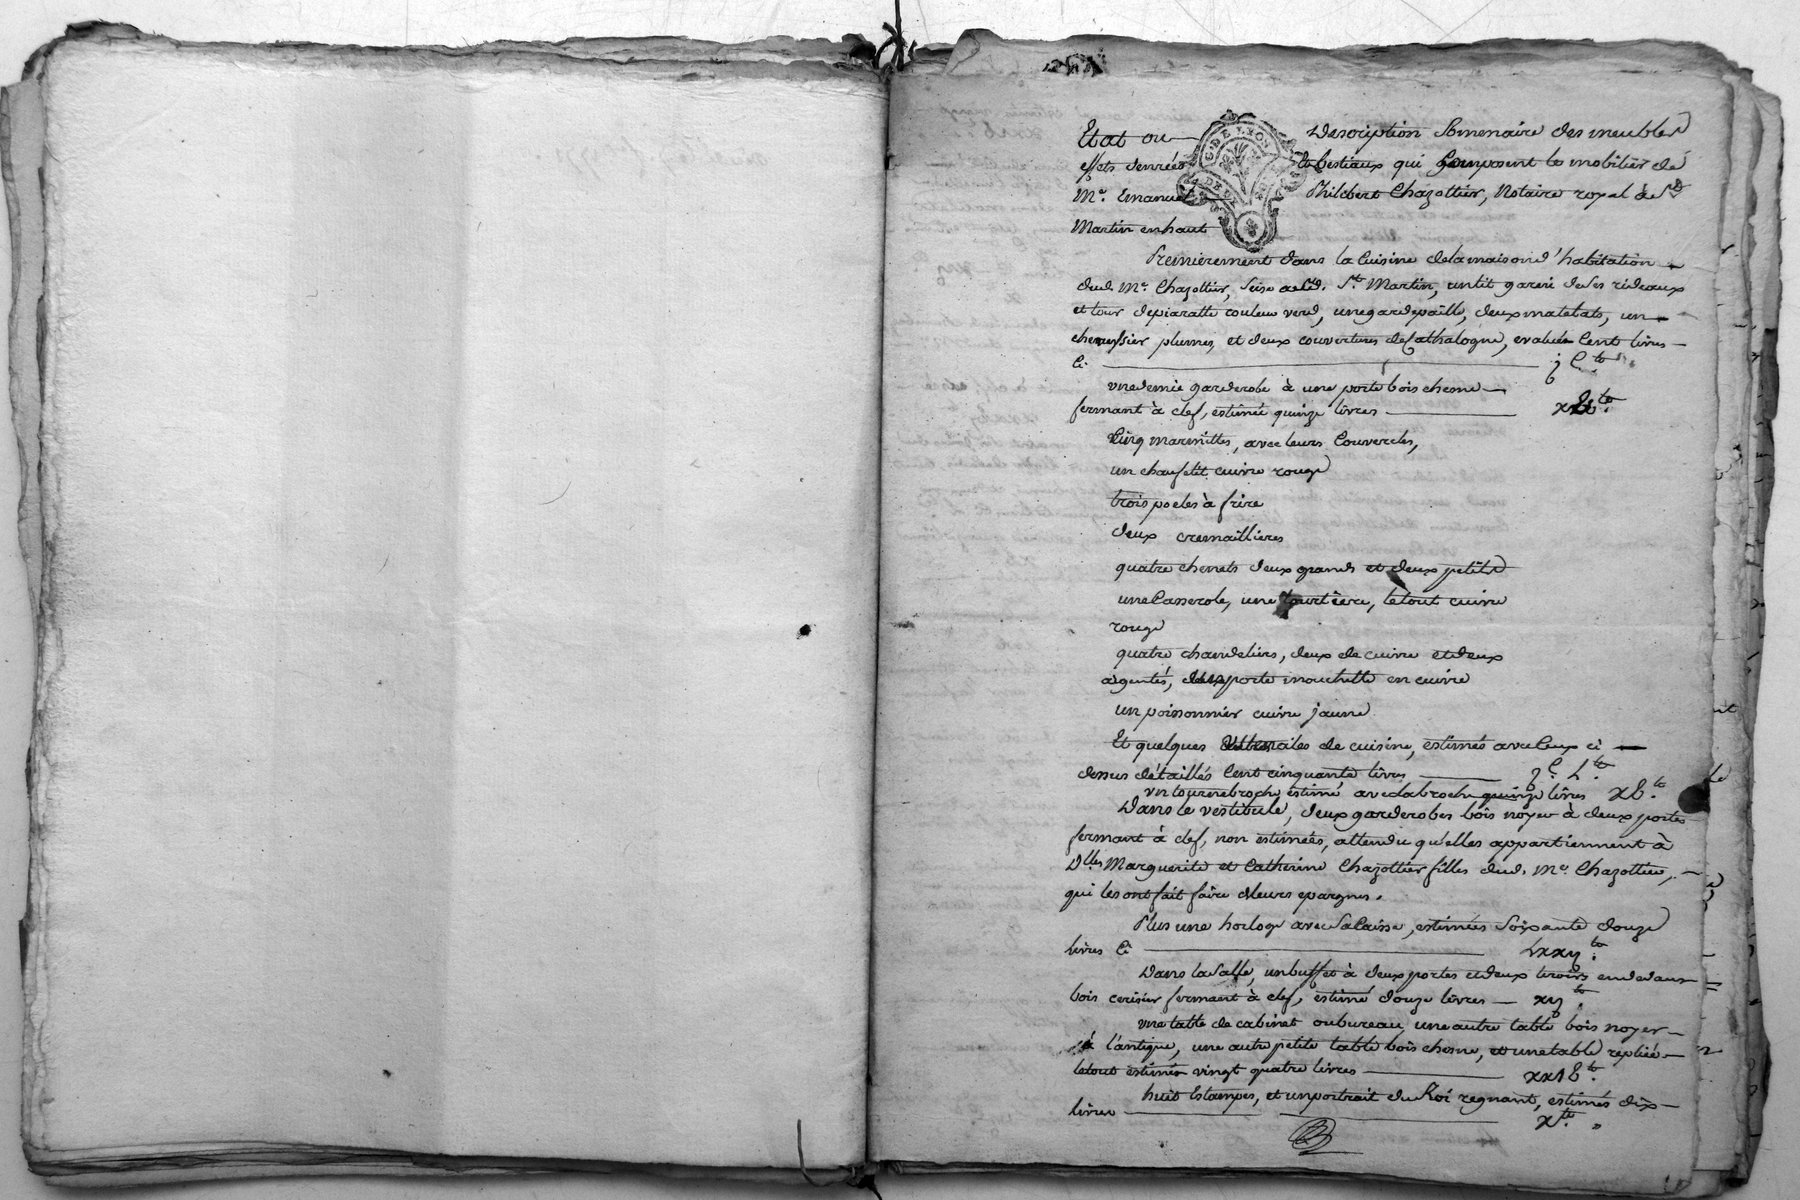 Etat ou Description Sommaire des meubles
effets denrées et bestiaux qui Composent le mobilier de
Me. Emanuel Philibert Chazottier, Notaire royal à St
Martin en haut
G. DE LYON
Premierement dans la Cuisine de la maison d'habitation
dud. Me. Chazottier, Sise aud. St. Martin, un lit garni de ses rideaux
et tour de piaratte couleur verd, une gardepaille, deux matelats, un
chevessier plumes, et deux couvertures de Cathalogne, evalués Cent livres
Ci jC.tt
une demie garderobe à une porte bois chesne
fermant à clef, estimée quinze livres xv.tt
Cinq marmittes, avec leurs Couvercles,
un chaufelit cuivre rouge
trois poeles à frire
deux cremaillieres
quatre chenets deux grands et deux petits
une Casserole, une tourtiere, le tout cuivre
rouge
quatre chandeliers, deux de cuivre et deux
argentés, deux porte mouchette en cuivre
un poissonnier cuivre jaune
Et quelques Ustenciles de cuisine, estimés avec Ceux ci
dessus détaillés Cent cinquante livres jC.L.tt
un tournebroche estimé avec la broche quinze livres xv.tt
Dans le vestibule, deux garderobes bois noyer à deux portes
fermant à clef, non estimées, attendu qu'elles appartiennent à
Dlles Marguerite et Catherine Chazottier filles dud. Me. Chazottier,
qui les ont fait faire de leurs epargnes.
Plus une horloge avec sa Caisse, estimées Soixante douze
livres Ci Lxxij.tt
Dans la Salle, un buffet à deux portes et deux tiroirs en dedans
bois cerisier fermant à clef, estimé douze livres xij.tt
une table de cabinet ou bureau, une autre table bois noyer
à l'antique, une autre petite table bois chesne, et une table repliée
le tout estimés vingt quatre livres xxiv.tt
huit Estampes, et un portrait du Roi regnant, estimés dix
livres x.tt